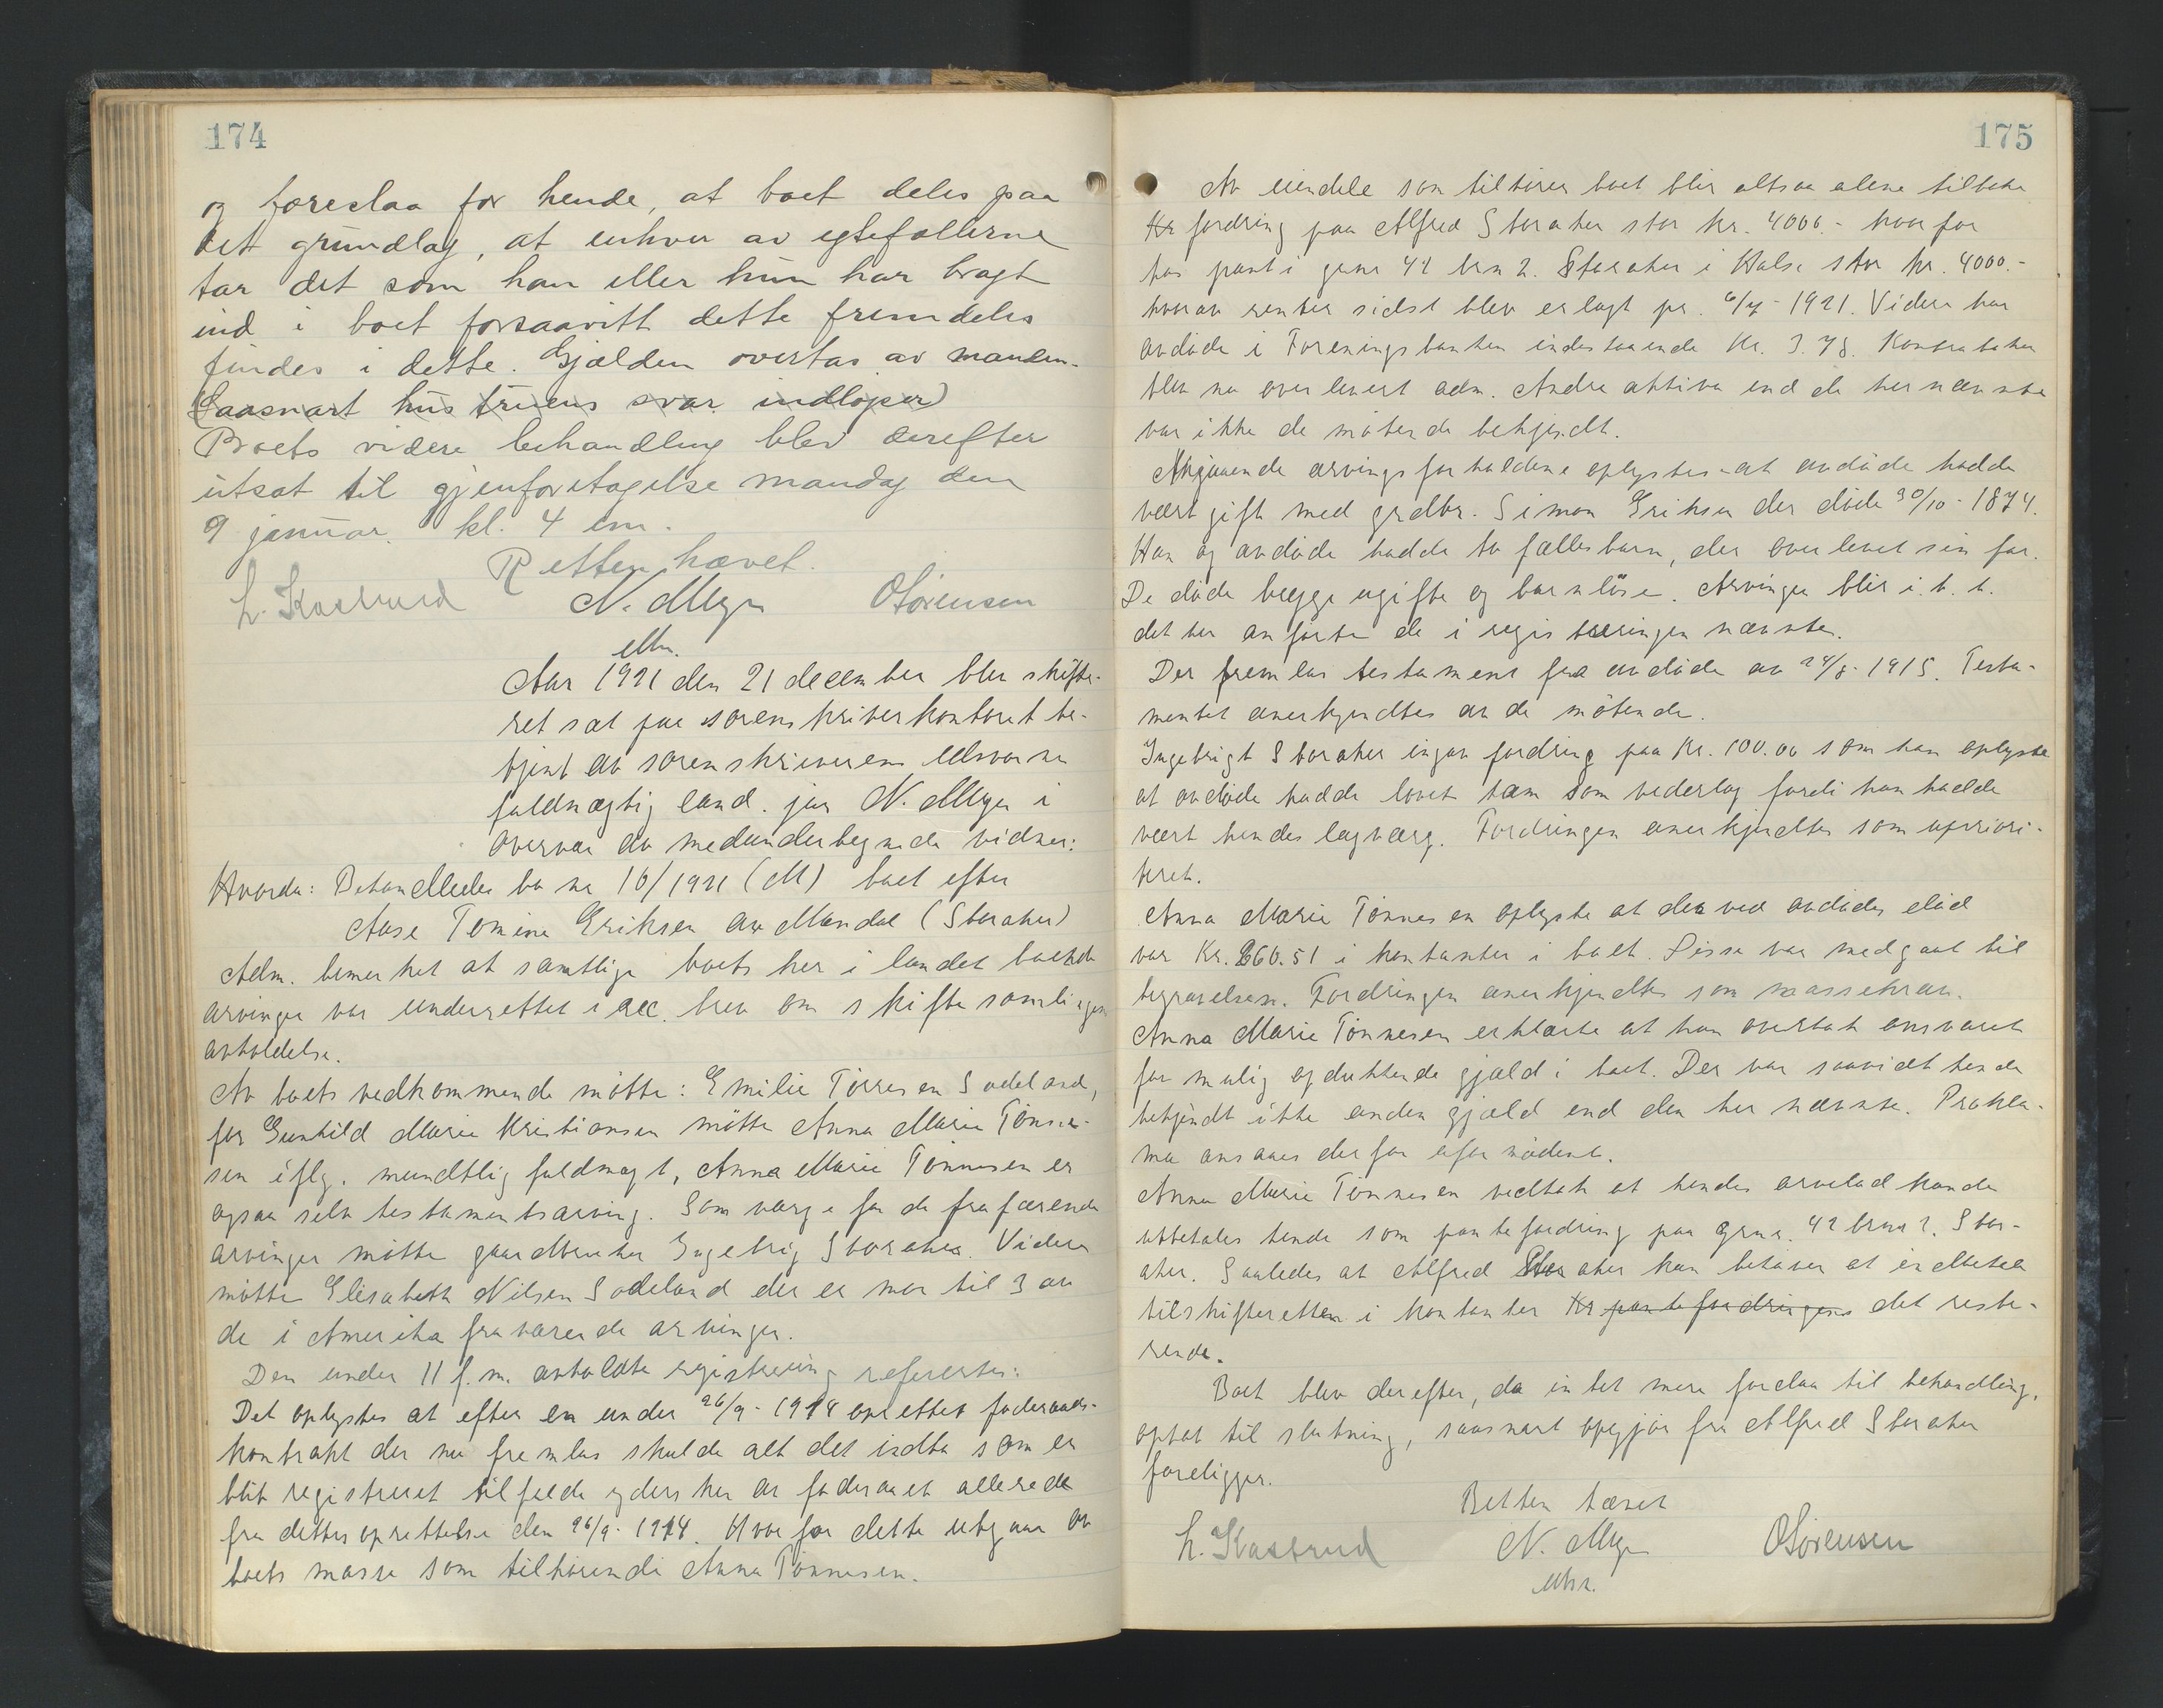 174
og foreslaa for hende, at boet deles paa
det grundlag, at enhver av egtefollerne
tar det som han eller hun har bragt
ind i boet forsaavitt dette fremdeles
findes i dette. Gjælden overtas av manden.
(Saasnart hustruens svar indløper)
Boets videre behandling blev derefter
utsat til gjenforetagelse mandag den
9 januar. kl. 4 em.
Retten hævet.
L. Kastrud N. Meyer OSørensen
Aar 1921 den 21 december blev skifte-
ret sat paa sorenskriverkontoret be-
tjent av sorenskriverens edsvorne
fuldmægtig cand. jur N. Meyer i
overvær av medundertegnede vidner:
Hvorda: Behandledes bo nr 16/1921 (M) boet efter
Aase Tomine Eriksen av Mandal (Storaker)
Adm. bemerket at samtlige boets her i landet boende
arvinger var underrettet i rec. brev om skiftesamlingens
avholdelse.
Av boets vedkommende møtte: Emilie Tørresen Sodeland,
for Gunhild Marie Kristiansen møtte Anna Marie Tønne-
sen iflg. mundtlig fuldmagt, Anna Marie Tønnesen er
ogsaa selv testamentsarving. Som værge for de fraværende
arvinger møtte gaardbruker Ingebrig Storaker. Videre
møtte Elisabeth Nilsen Sodeland der er mor til 3 av
de i Amerika fraværende arvinger.
Den under 11 f.m. avholdte registrering refertes:
Det oplystes at efter en under 26/9-1918 oprettet føderaads-
kontrakt der nu fremlas skulde alt det indbo som er
blit registreret tilfalde yderskeren av føderaadet allerede
fra dettes oprettelse den 26/9-1914. Hvorfor dette utgaar av
boets masse som tilhørende Anna Tønnesen.
175
Av eiendele som tilhører boet blir altsaa alene tilbake
Kr fordring paa Alfred Storaker stor kr. 4000.- hvorfor
has pant i gnr 42 brn 2. Storaker i Halse stor kr. 4000.-
hvorav renter sidst blev erlagt pr. 6/7-1921. Videre har
avdøde i Foreningsbanken indestaaende Kr. 3.78. Kontraboken
blev nu overlevert adm. Andre aktiva end de her nævnte
var ikke de møtende bekjendt.
Angaaende arvingsforholdene oplystes at avdøde hadde
vært gift med grdbr. Simon Eriksen der døde 30/10-1874.
Han og avdøde hadde to fællesbarn, der overlevet sin far.
De døde begge ugifte og barnløse. Arvinger blir i.h.t.
det her anførte de i registreringen nævnte.
Der fremlas testament fra avdøde av 24/8-1915. Testa-
mentet anerkjendtes av de møtende.
Ingebrigt Storaker ingav fordring paa Kr. 100.00 som han oplyste
at avdøde hadde lovet ham som vederlag fordi han hadde
vært hendes lagværg. Fordringen anerkjendtes som upriori-
teret.
Anna Marie Tønnesen oplyste at der ved avdødes død
var Kr. 260.51 i kontanter i boet. Disse var medgaat til
begravelsen. Fordringen anerkjendtes som massekrav.
Anna Marie Tønnesen erklærte at hun overtok ansvaret
for mulig opdukkende gjæld i boet. Der var saavidt hende
bekjendt ikke anden gjæld end den her nævnte. Prokla-
ma ansaaes derfor ufornødent.
Anna Marie Tønnesen vedtok at hendes arvelod kunde
utbetales hende som pantefordring paa grnr. 42 brnr 2. Stor-
aker. Saaledes at Alfred Storaker kun behøver at indbetale
til skifteretten i kontanter Kr pantefordringens det reste-
rende.
Boet blev derefter, da intet mere forelaa til behandling,
optat til slutning, saasnart opgjør fra Alfred Storaker
foreligger.
Retten hævet
L. Kastrud N. Meyer OSørensen